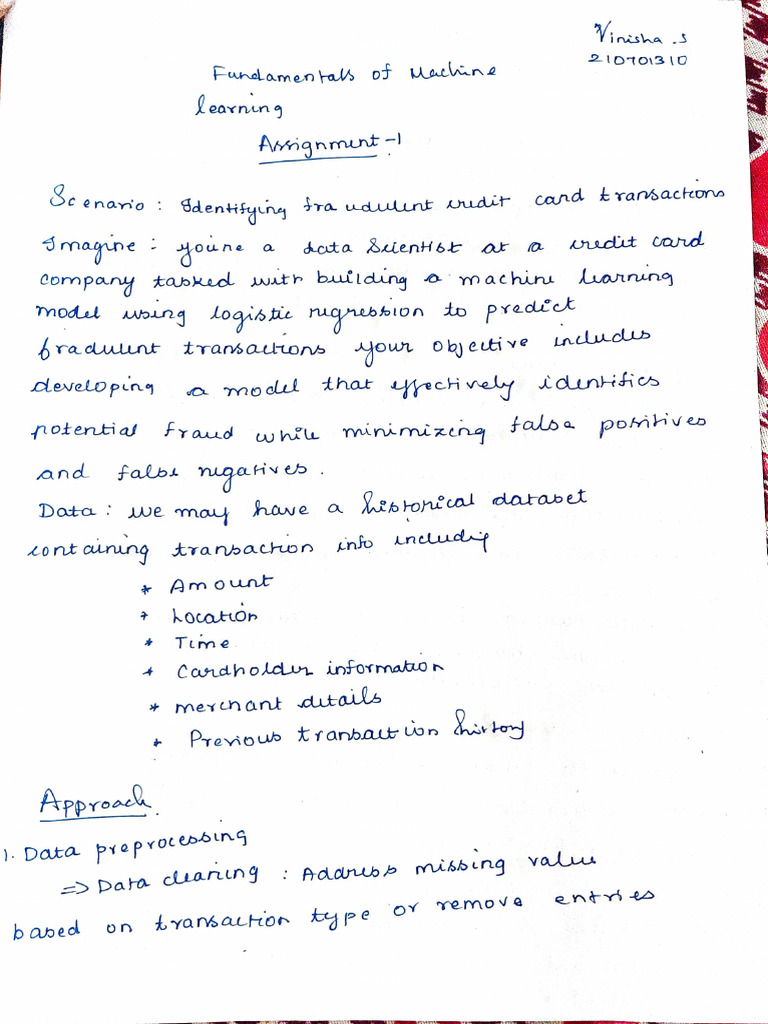 Vinisha .S
210701310
Fundamentals of Machine
learning
Assignment -1
Scenario : Identifying fraudulent credit card transactions
Imagine : you're a data Scientist at a credit card
company tasked with building a machine learning
model using logistic regression to predict
fradulent transactions your objective includes
developing a model that effectively identifies
potential fraud while minimizing false positives
and false negatives .
Data : we may have a historical dataset
containing transaction info including
* Amount
* Location
* Time
* Cardholder information
* merchant details
* Previous transaction history
Approach.
1. Data preprocessing
=> Data cleaning : Address missing value
based on transaction type or remove entries